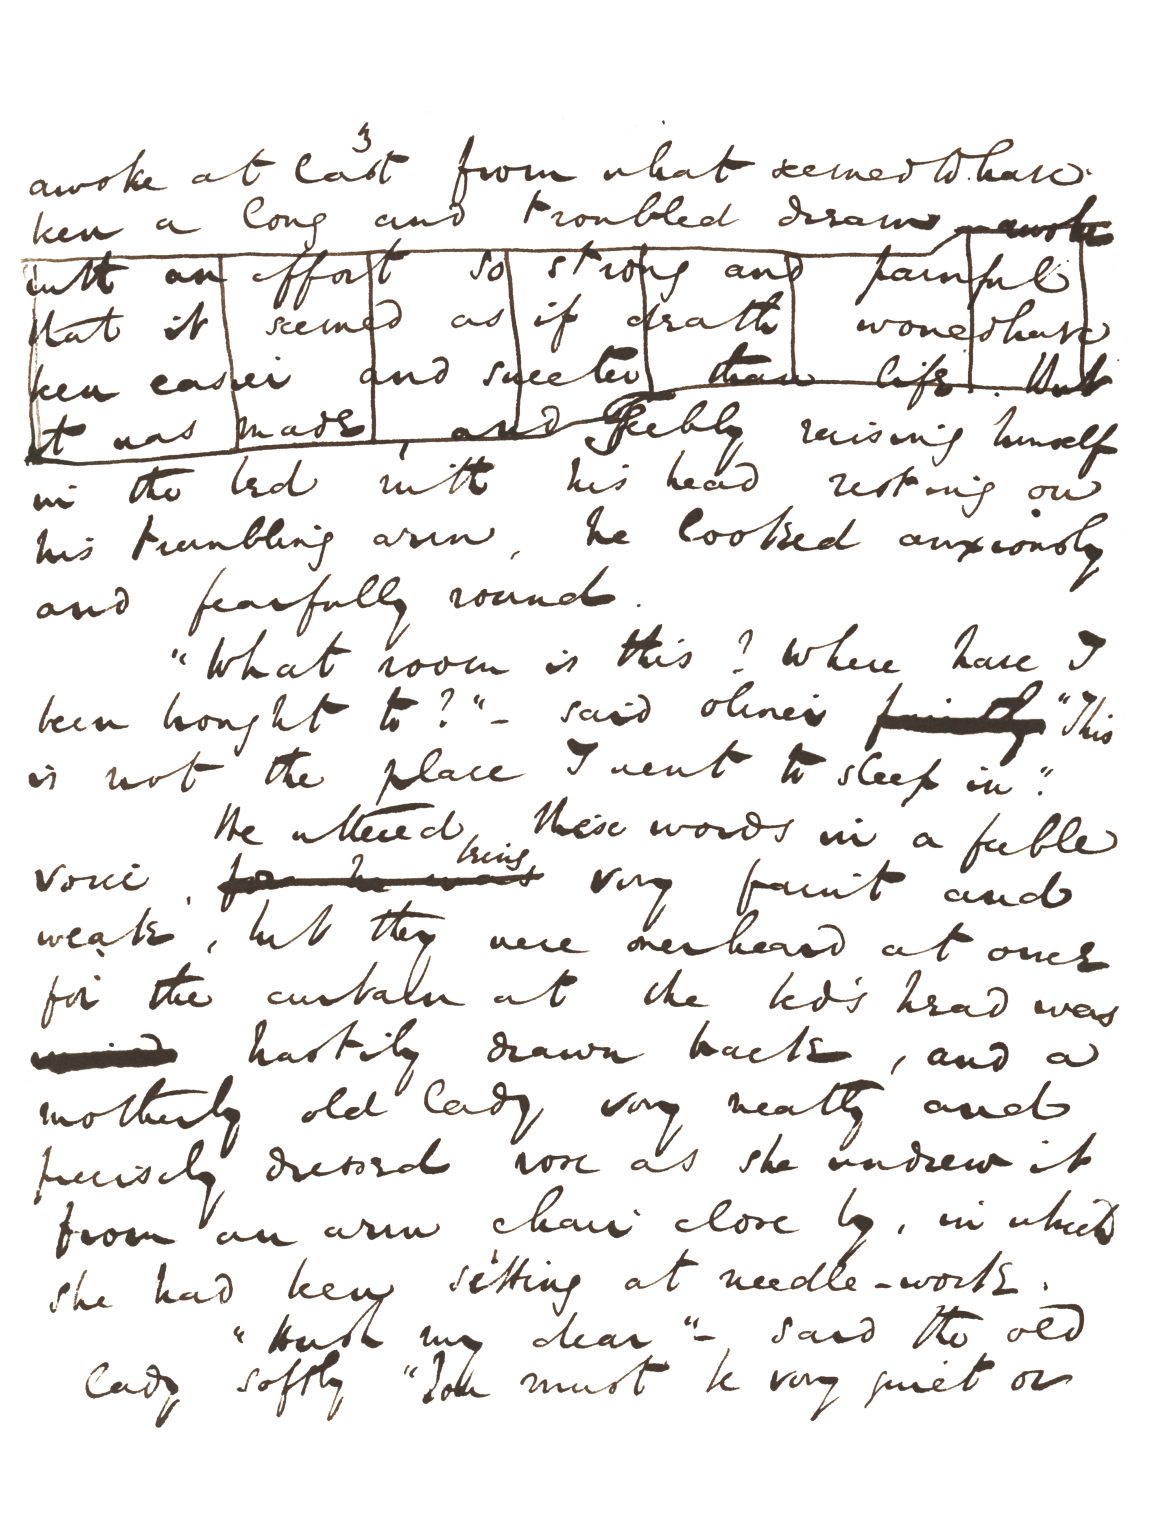 3
awoke at last from what seemed to have
been a long and troubled dream awoke
with an effort so strong and painful
that it seemed as if death would have
been easier and sweeter than life. But
it was made, and Feebly raising himself
in the bed with his head resting on
his trembling arm, he looked anxiously
and fearfully round.
"What room is this? Where have I
been brought to?"- said Oliver faintly "This
is not the place I went to sleep in".
He uttered these words in a feeble
voice, for he was being very faint and
weak, but they were overheard at once
for the curtain at the bed's head was
hastily drawn back, and a
motherly old lady very neatly and
precisely dressed rose as she undrew it
from an arm chair close by, in which
she had been sitting at needle-work.
"Hush my dear"- said the old
lady softly "You must be very quiet or